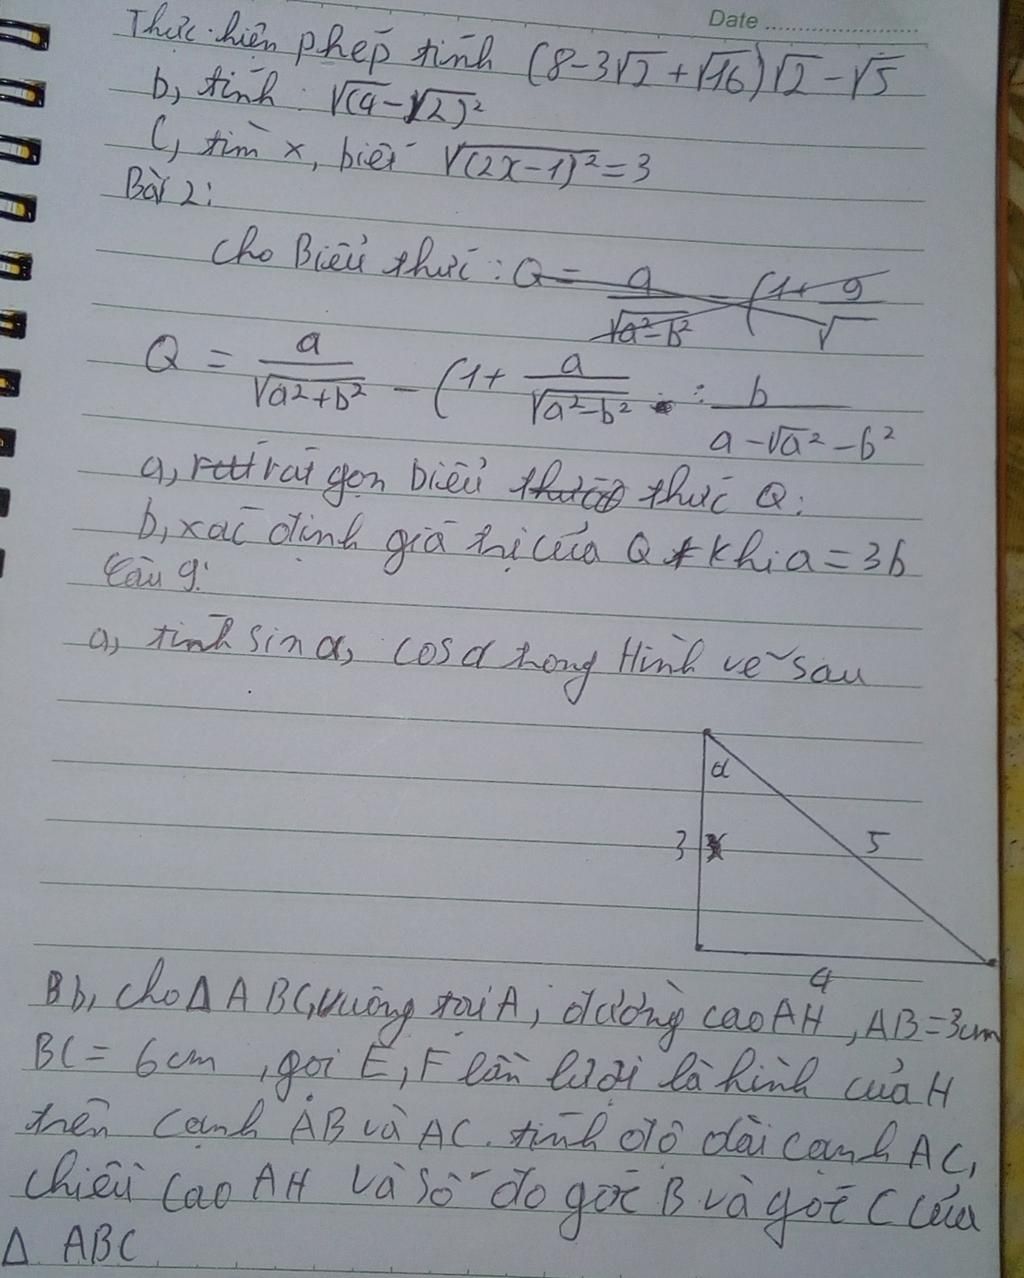 Date
Thực hiện phép tính (8-3√2+√16)√2-√5
b, tính: √(4-√2)²
C, tìm x, biết √(2x-1)²=3
Bài 2:
cho Biểu thức: Q = a/√a²-b² - (1+ a/√
Q = a/√a²+b² - (1+ a/√a²-b² : b/a-√a²-b²
a, rút gọn biểu thức Q:
b, xác định giá trị của Q khi a=3b
Câu 9:
a, tính sin α, cos α trong Hình vẽ sau
α
3 5
4
Bb, cho Δ ABC, vuông tại A, đường cao AH, AB=3cm
BC = 6cm, gọi E, F lần lượt là hình của H
trên cạnh AB và AC. tính độ dài cạnh AC,
chiều cao AH và số đo góc B và góc C của
Δ ABC